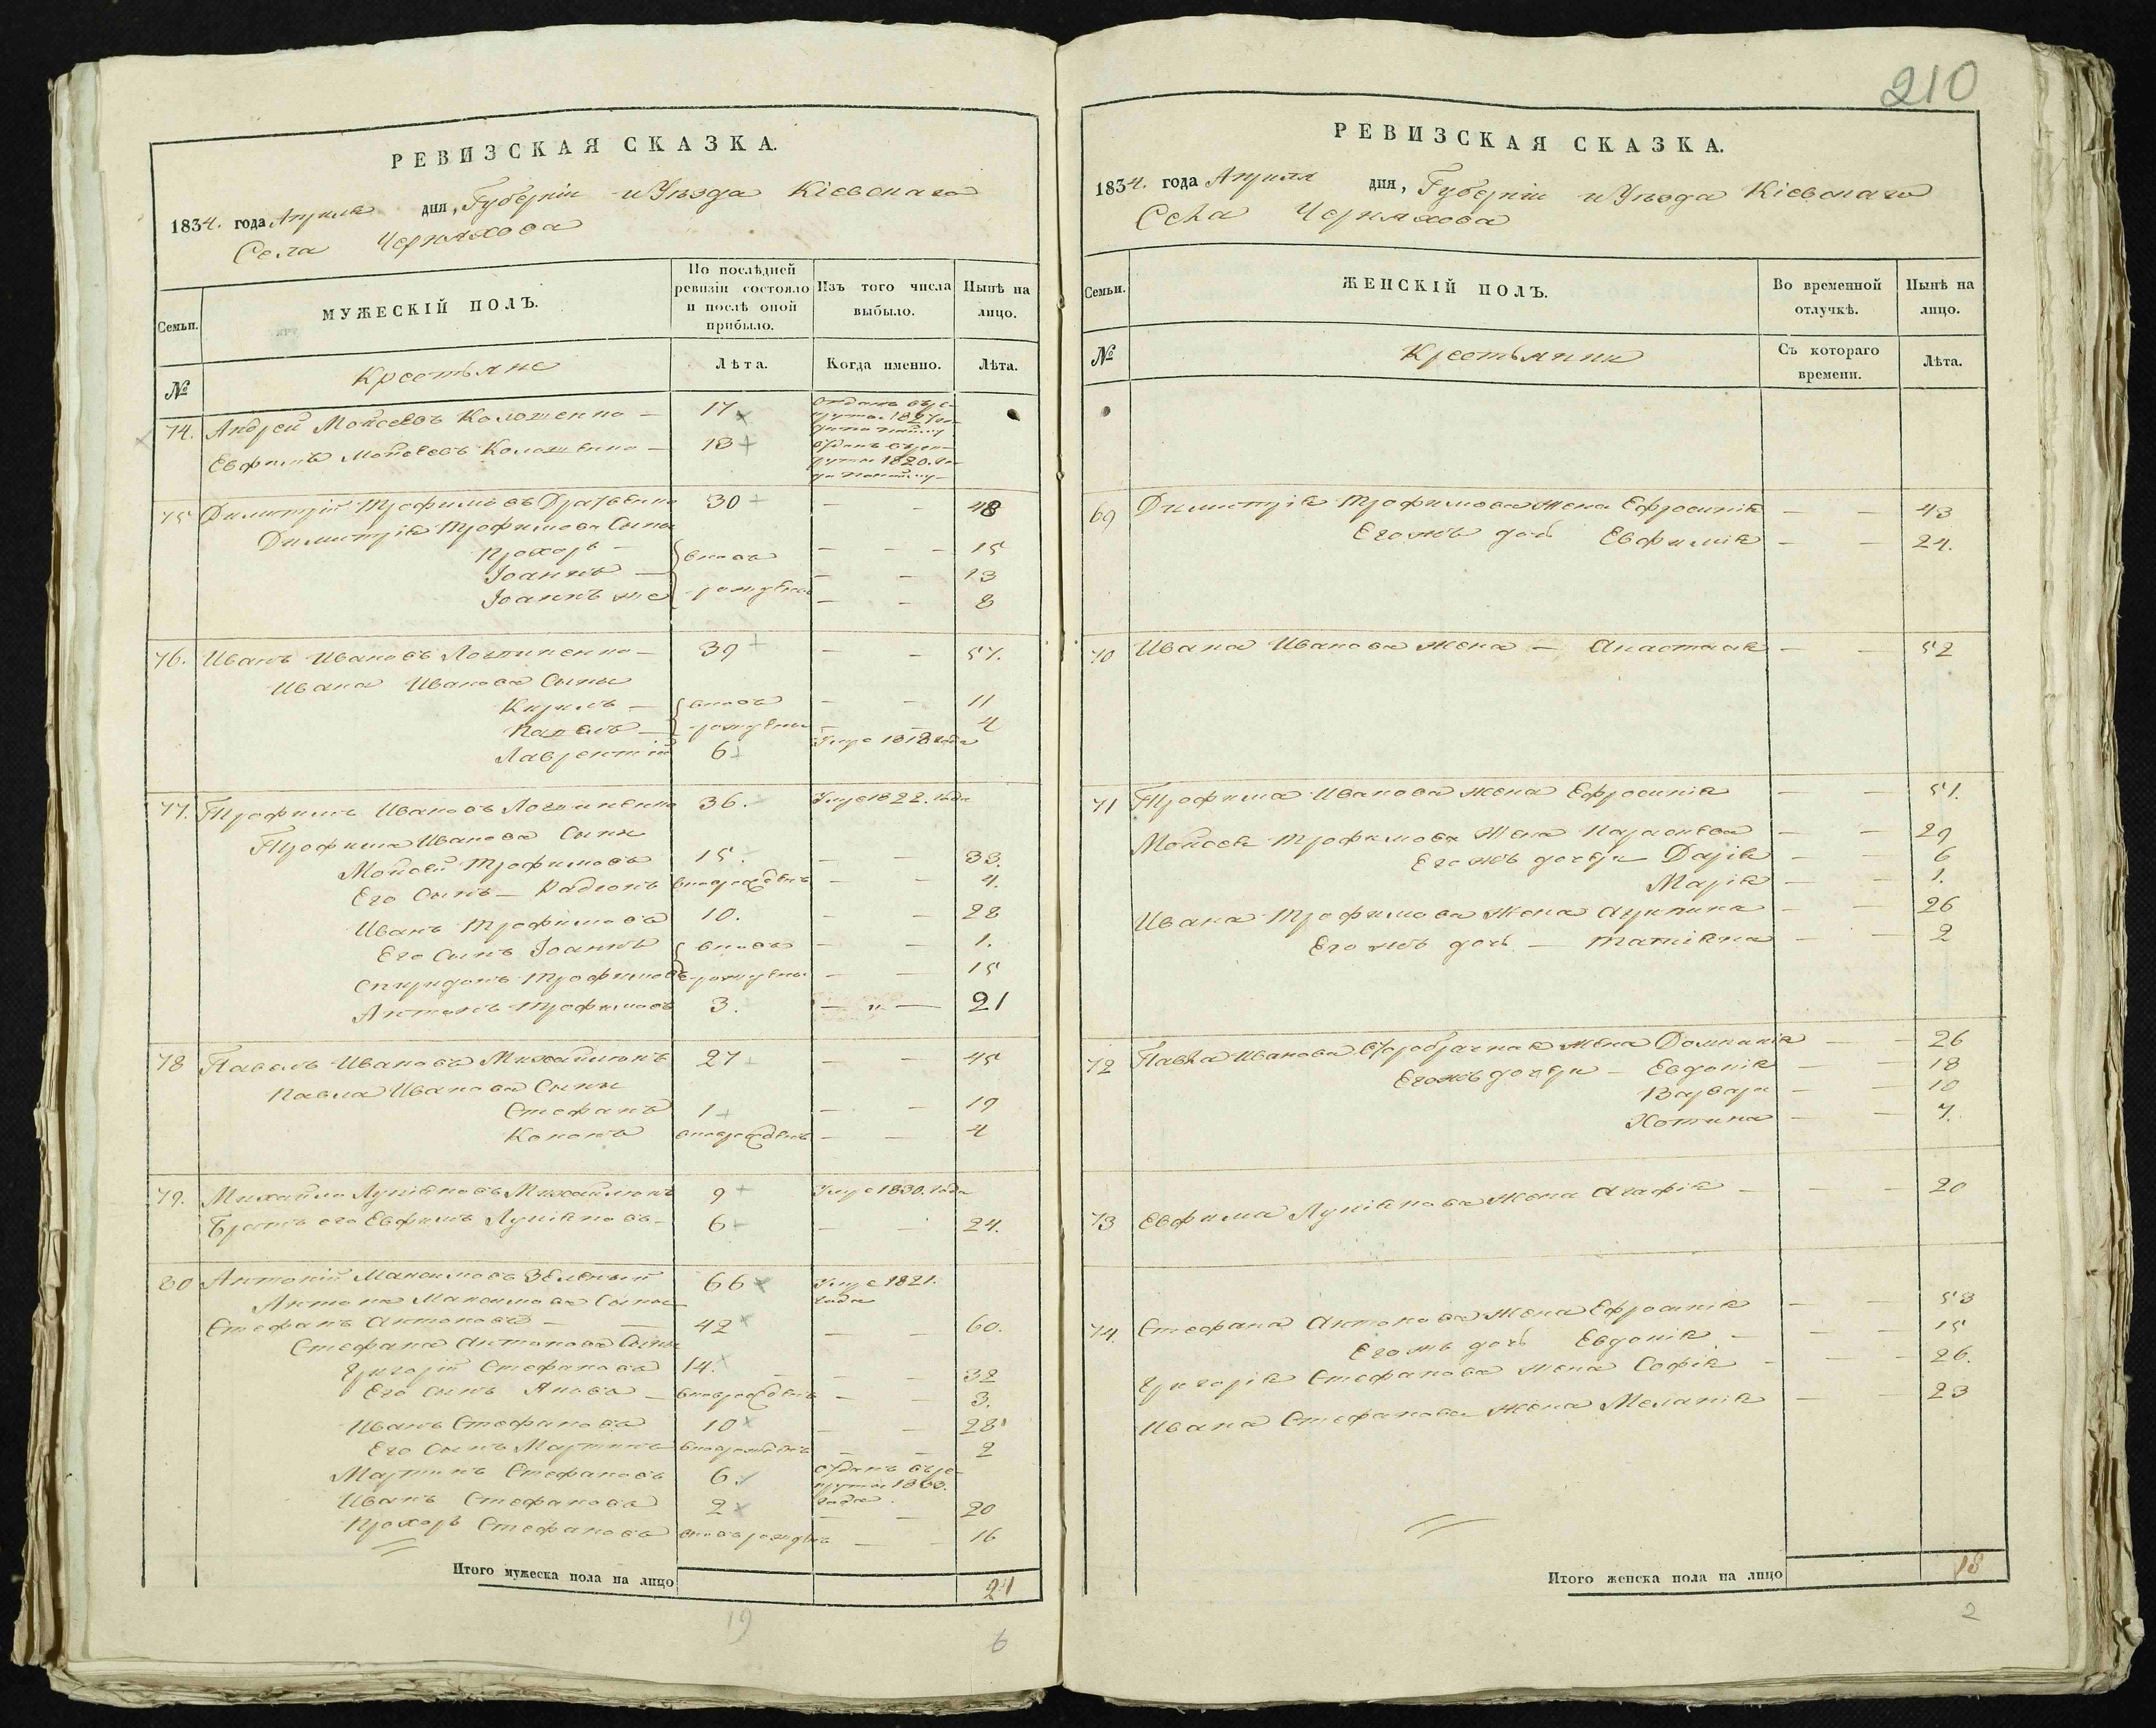 РЕВИЗСКАЯ СКАЗКА.
1834. года Апреля дня, Губерніи и Уѣзда Кіевскаго
Села Черняхова
Семьи.
МУЖЕСКІЙ ПОЛЪ.
По послѣдней ревизіи состояло и послѣ оной прибыло.
Изъ того числа выбыло.
Нынѣ на лицо.
№
Крестьяне
Лѣта.
Когда именно.
Лѣта.
74. Андрей Мойсеевъ — 17 отданъ въ рекруты 1827
Евфимъ Мойсеевъ — 18 отданъ въ рекруты 1820.
75 Димитрій Трофимовъ 30 — — 48
Димитрія Трофимова Сыны
Прохоръ — вновь — — 15
Іоаннъ — — — 13
Іоаннъ же рождены — — 8
76. Иванъ Ивановъ Логвиненко — 39 — — 57.
Ивана Иванова Сыны
Кирилъ — вновь — — 11
Павелъ — рождены — — 4
Лаврентій 6 Умре 1818 года
77. Трофимъ Ивановъ Логвиненко 36. Умре 1822. года
Трофима Иванова Сыны
Мойсей Трофимовъ 15. — — 33.
Его Сынъ — Радионъ вновьрожденъ — — 4.
Иванъ Трофимовъ 10. — — 28
Его сынъ Іоаннъ вновь — — 1.
Спиридонъ Трофимовъ рождены — — 15
Антонъ Трофимовъ 3. — „ — 21
78 Павелъ Ивановъ Михайлюкъ 27 — — 45
Павла Иванова Сыны
Стефанъ 1 — — 19
Кононъ вновьрожденъ — — 4
79. Михайло Лукіяновъ Михайлюкъ 9 Умре 1830. года
Братъ его Евфимъ Лукіяновъ — 6 — — 24.
80 Антоній Максимовъ Зеленый 66 Умре 1821. года
Антона Максимова Сыны
Стефанъ Антоновъ — — 42 — — 60.
Стефана Антонова Сыны
Григорій Стефановъ 14. — — 32
Его сынъ Яковъ — вновьрожденъ — — 3.
Иванъ Стефановъ 10 — — 28
Его Сынъ Мартинъ вновьрожденъ — — 2
Мартинъ Стефановъ 6. отданъ въ рекруты 1833. года.
Иванъ Стефановъ 2 — — 20
Прохоръ Стефановъ вновьрожденъ — — 16
Итого мужеска пола на лицо 21
19
6
210
РЕВИЗСКАЯ СКАЗКА.
1834. года Апреля дня, Губерніи и Уѣзда Кіевскаго
Села Черняхова
Семьи.
ЖЕНСКІЙ ПОЛЪ.
Во временной отлучкѣ.
Нынѣ на лицо.
№
Крестьянки
Съ котораго времени.
Лѣта.
69 Димитрія Трофимова Жена Ефросинія — — 43
Его жъ дочь Евфимія — — 24.
70 Ивана Иванова жена — Анастасія — — 52
71 Трофима Иванова жена Ефросинія — — 51.
Мойсея Трофимова Жена Параскева — — 29
Его жъ дочери Дарія — — 6
Марія — — 1.
Ивана Трофимова жена Акилина — — 26
Его жъ дочь — Татіяна — — 2
72 Павла Иванова второбрачная жена Домникія — — 26
Его жъ дочери — Евдокія — — 18
Варвара — — 10
Хотина — — 7.
73 Евфима Лукіянова жена Агафія — — 20
74. Стефана Антонова жена Ефросинія — — 53
Его жъ дочь Евдокія — — 15
Григорія Стефанова жена Софія — — 26.
Ивана Стефанова жена Меланія — — 23
Итого женска пола на лицо 18
2